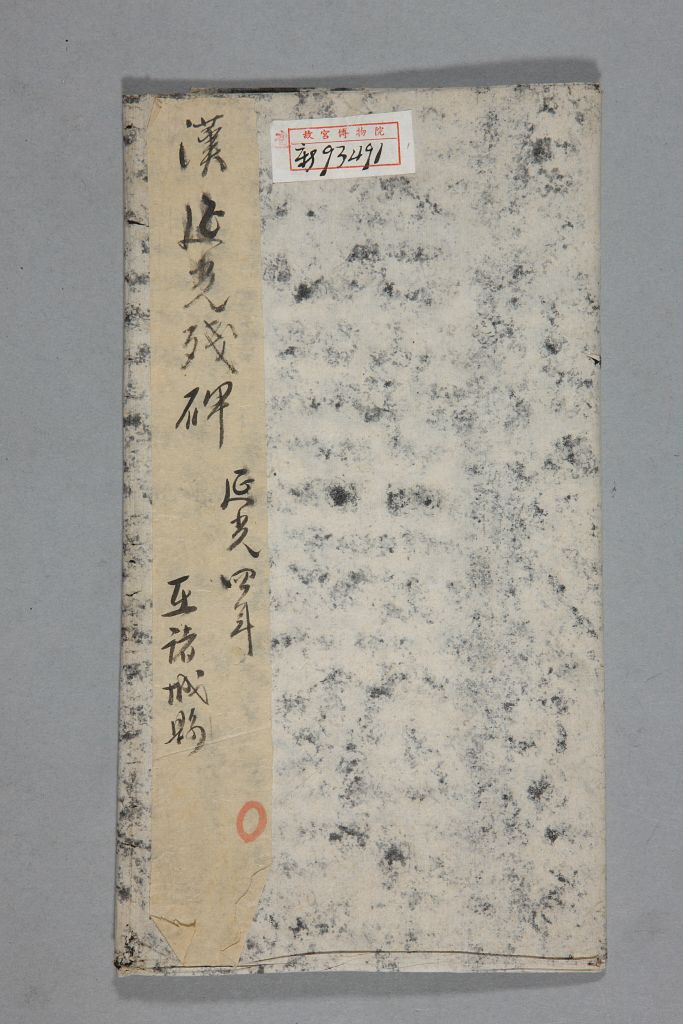 漢延光残碑
延光四年
在諸城縣
故宮博物院
新93491